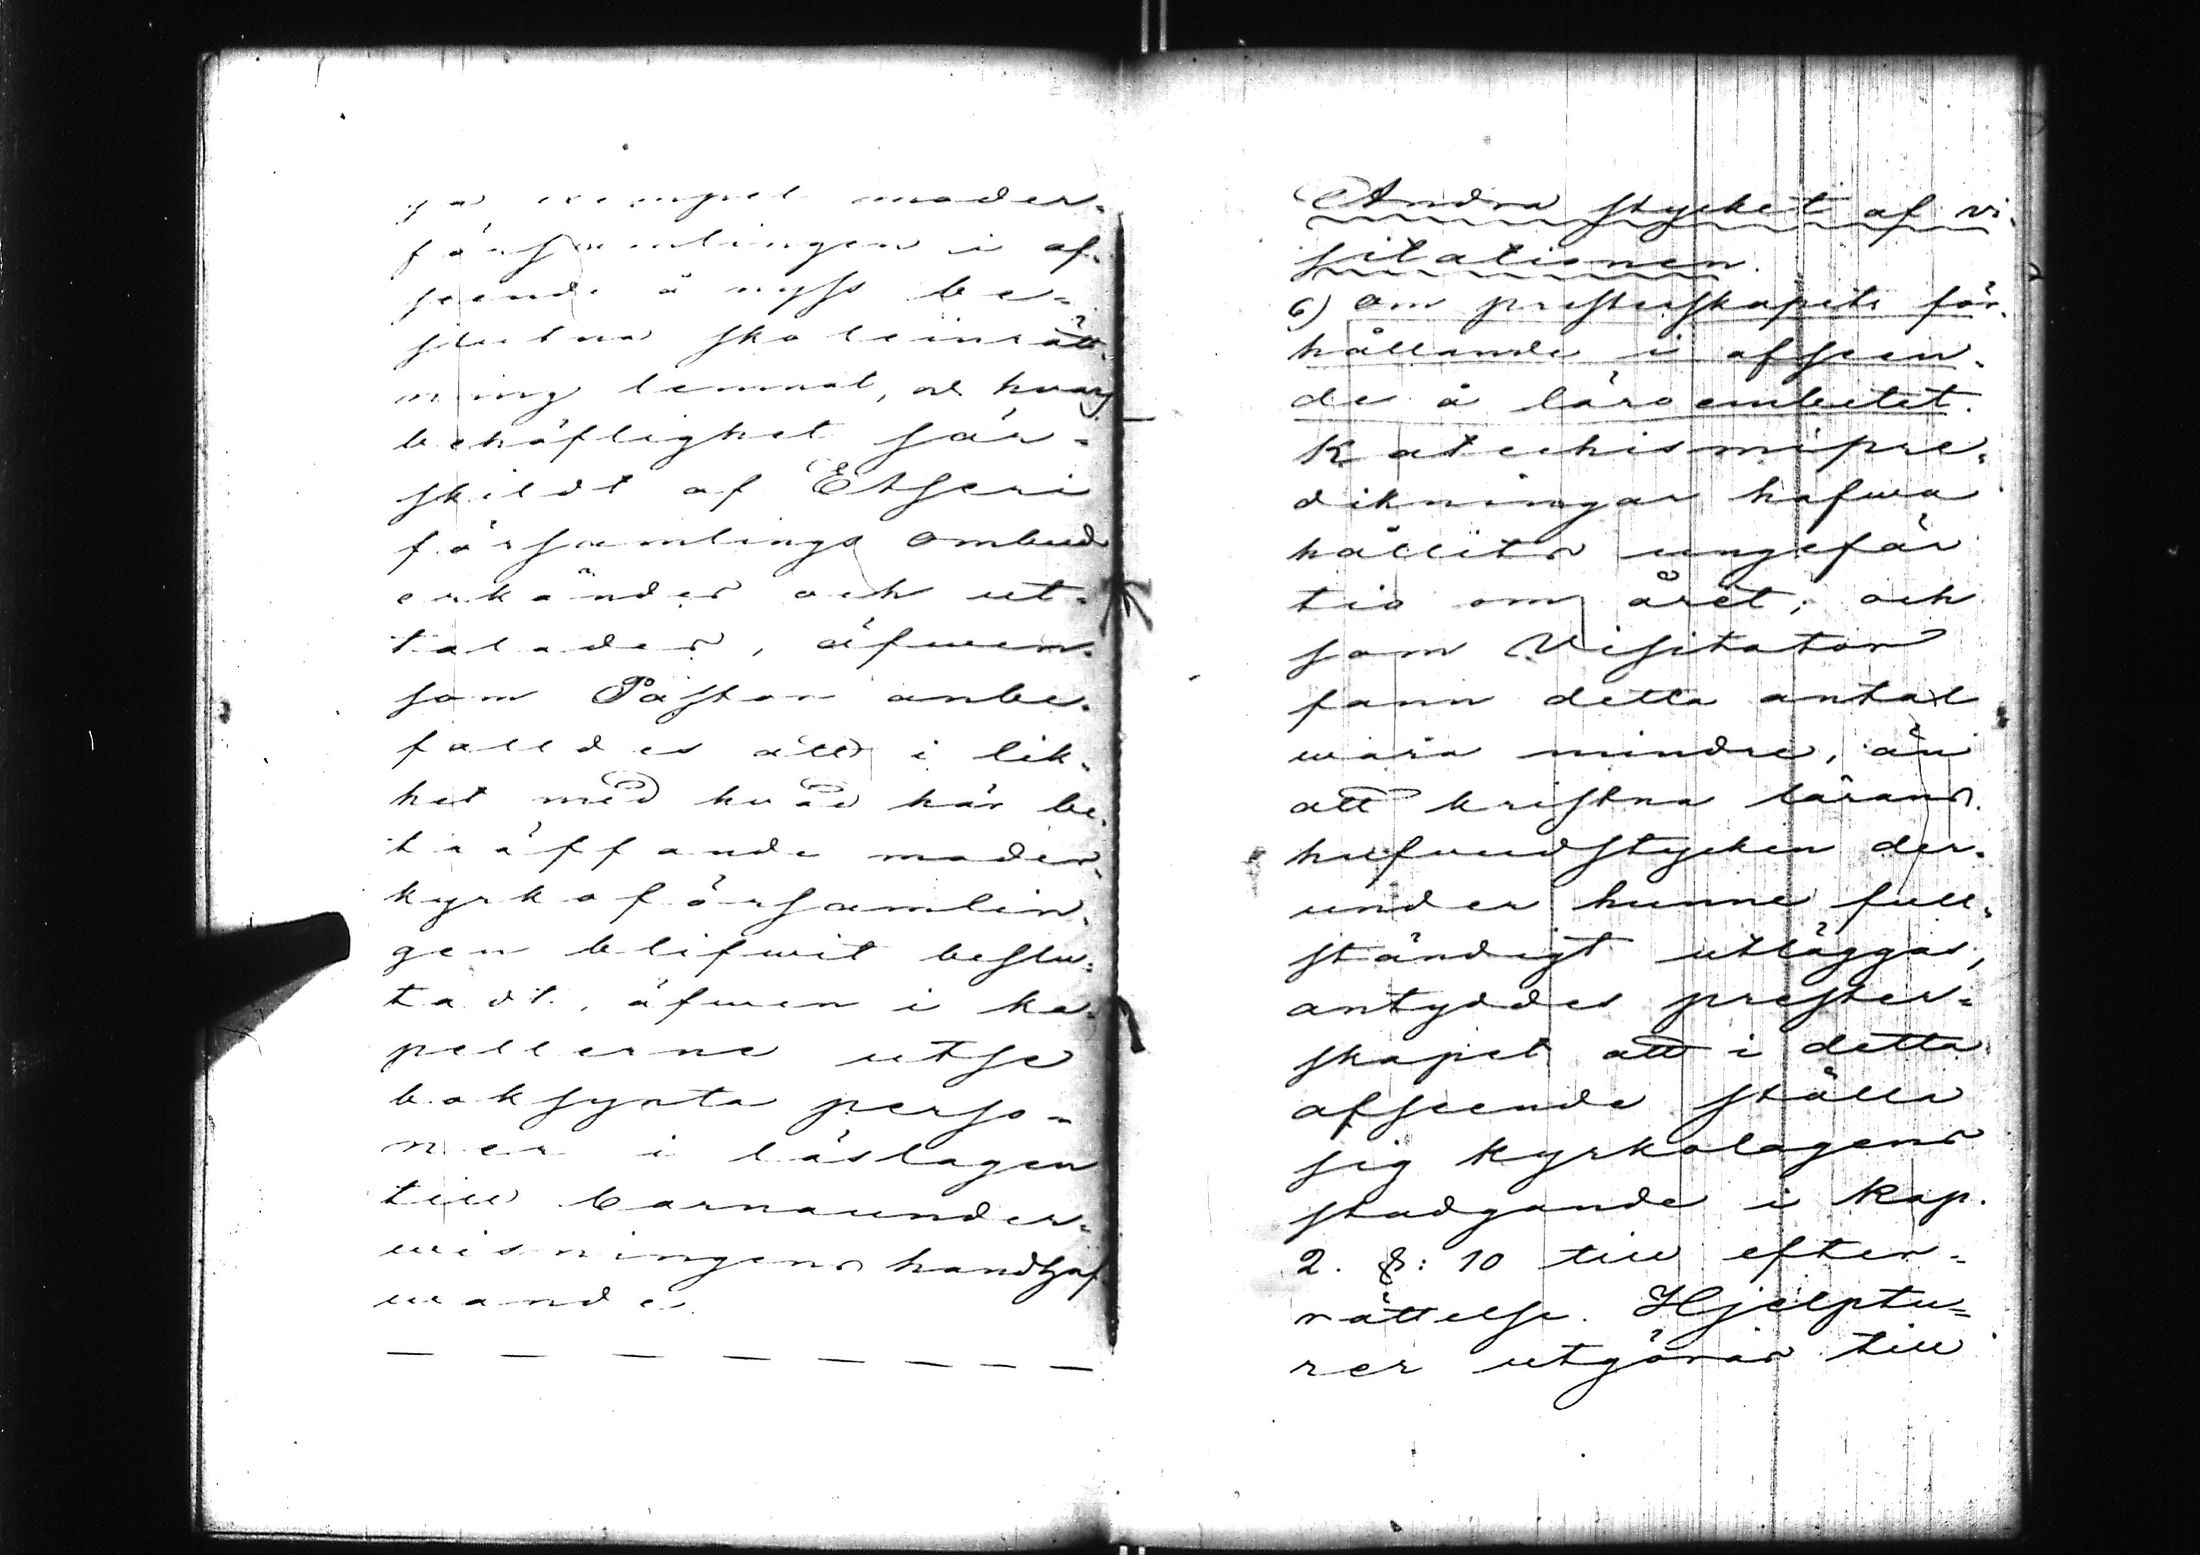 ga exempel moder-
församlingen i af-
seende å nyss be-
slutna skoleinrätt-
ning lemnat, och hvars
behöflighet sär-
skildt af Etseri
församlings ombud
erkändes och ut-
talades, äfwen-
som Pastor anbe-
falldes att i lik-
het med hvad här be-
träffande moder-
kyrkoförsamlin-
gen blifwit beslu-
tadt, äfwen i ka-
pellerne utse
boksynta perso-
ner i läslagen
till barnaunder-
wisningens handhaf-
wande.
Andra stycket af vi-
sitationen.
6) Om presterskapets för-
hållande i afseen-
de å läroembetet.
Katechismipre-
dikningar hafwa
hållits ungefär
tio om året; och
som Visitator
fann detta antal
wara mindre, än
att kristna lärans
hufwudstycken der-
under hunne full-
ständigt utläggas,
antyddes prester-
skapet att i detta
afseende ställa
sig kyrkolagens
stadgande i Kap.
2. §: 10 till efter-
rättelse. Hjelptu-
rer utgöras till